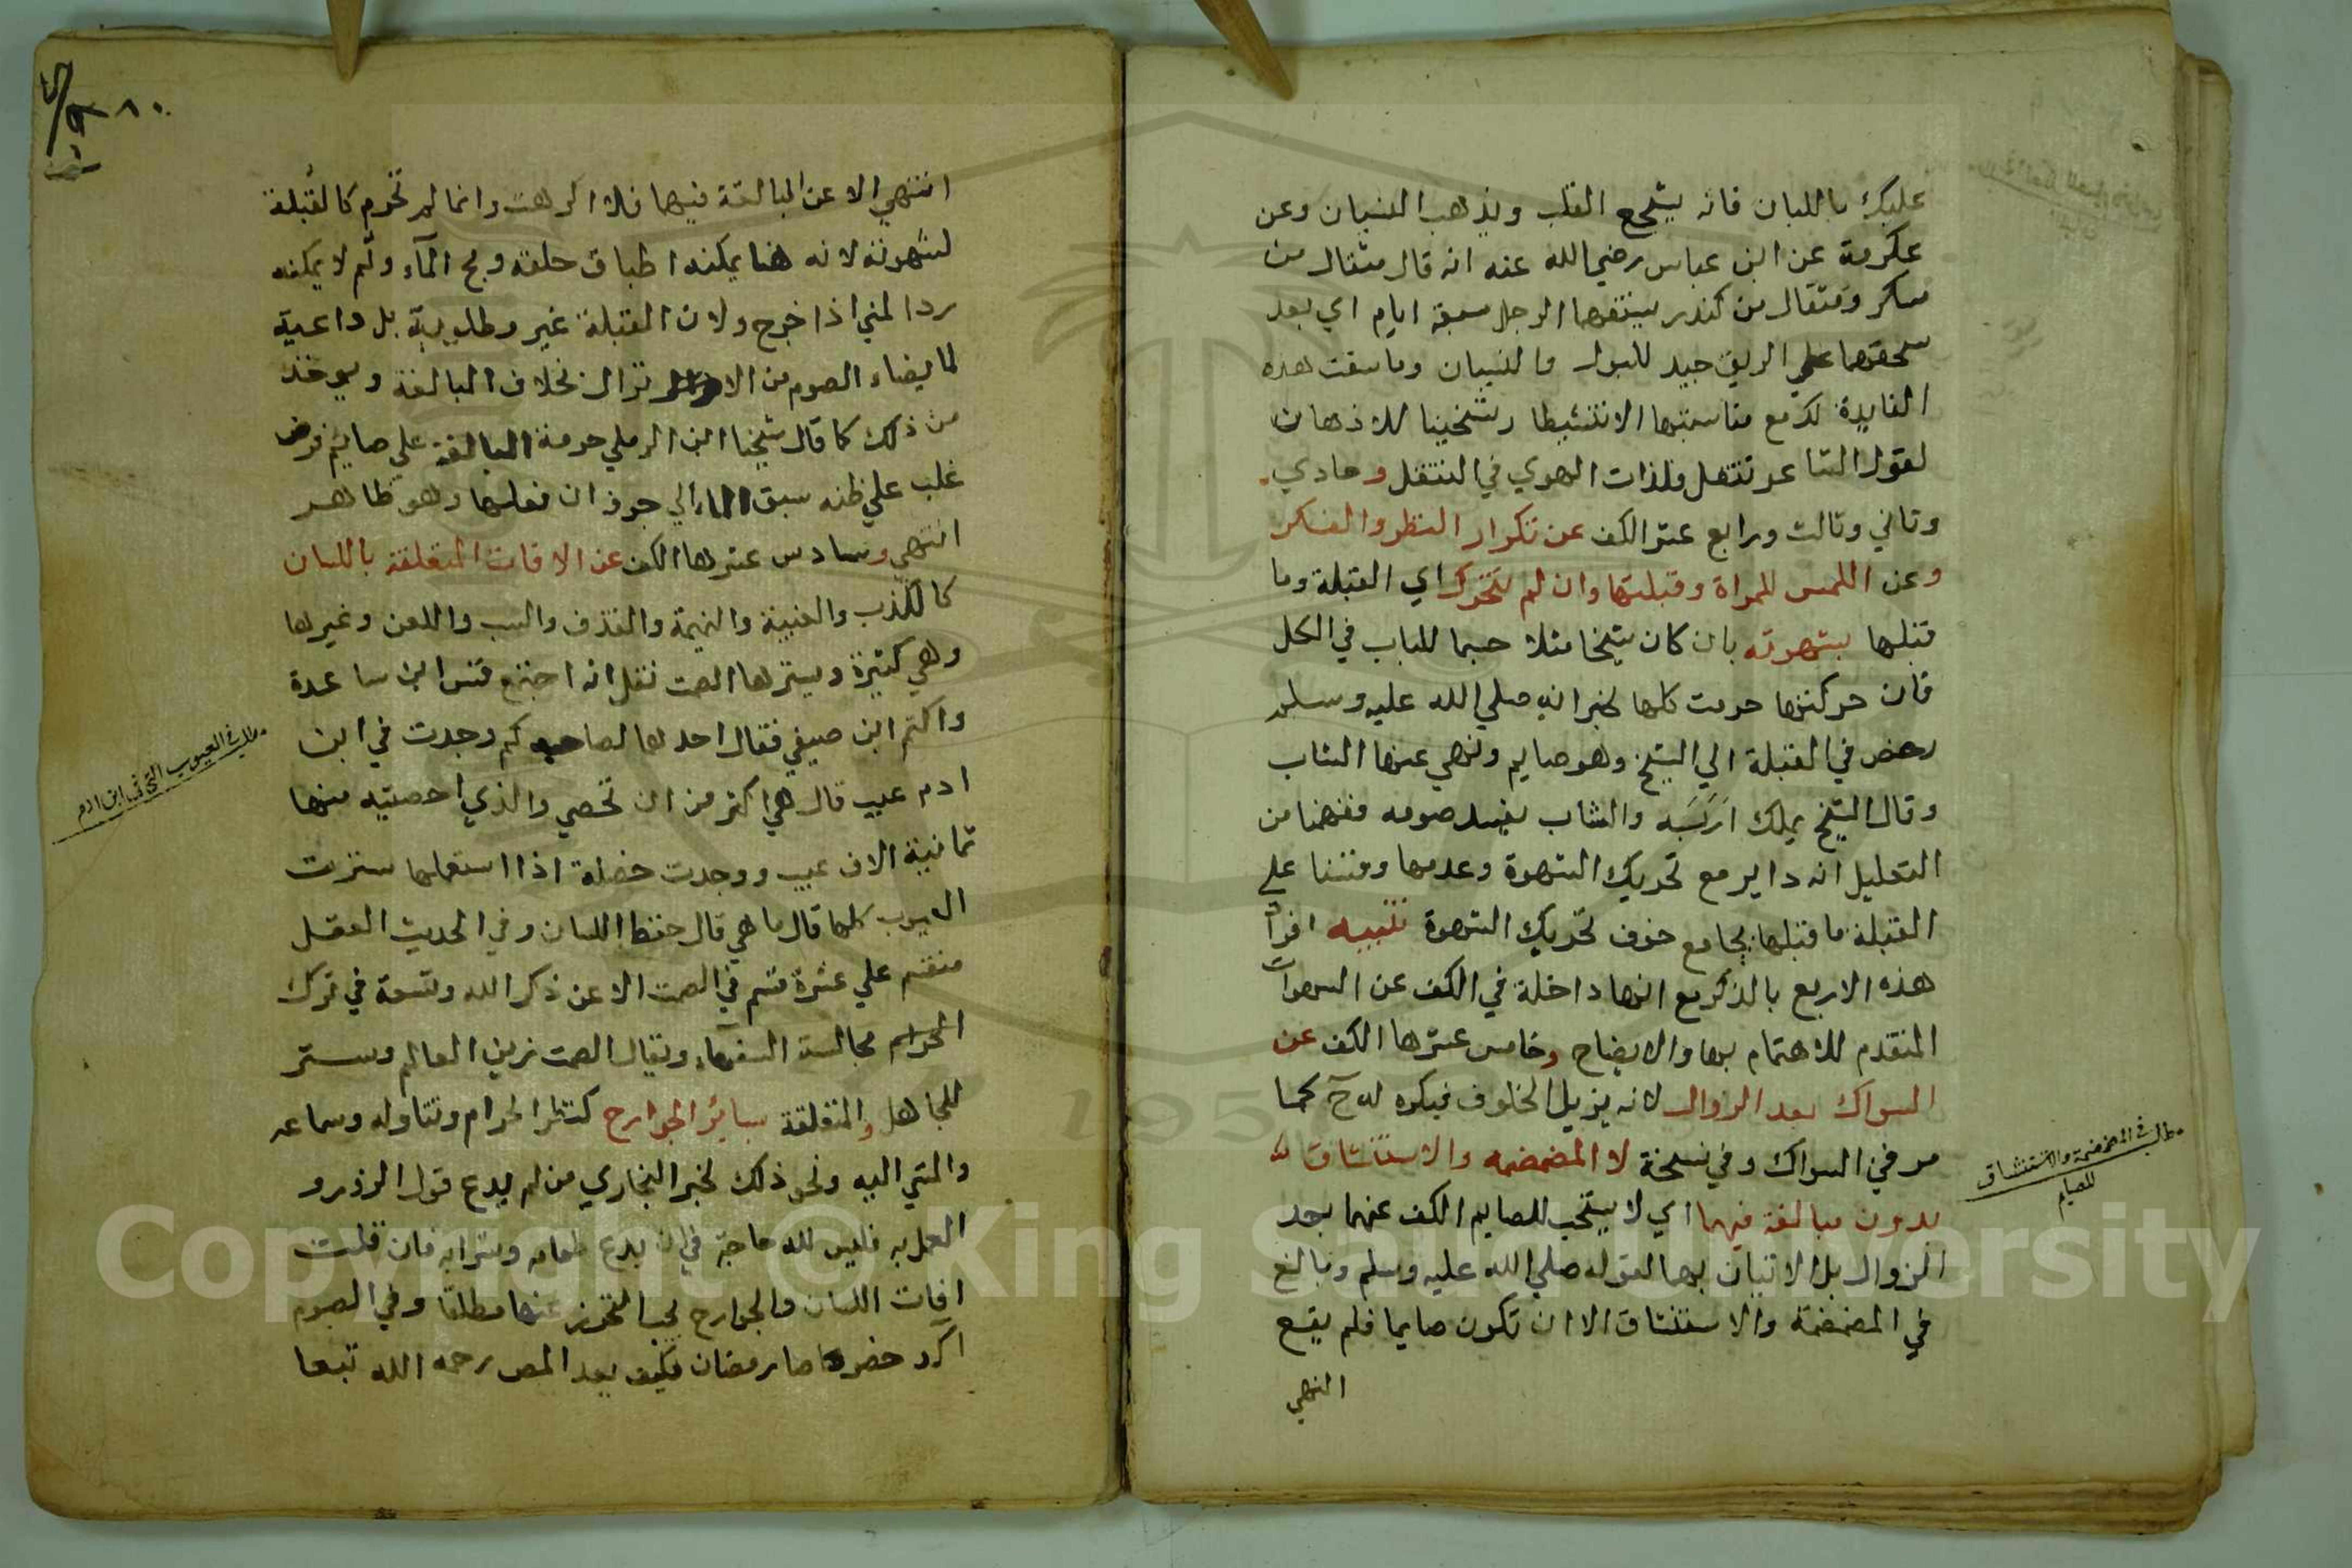 عليك باللبان فانه يشجع القلب ويذهب النسيان وعن
عكرمة عن ابن عباس رضي الله عنه انه قال مثقال من
سكر ومثقال من كندر يستفهما الرجل سبعة ايام اي بعد
سحقهما علي الريق جيد للبول والنسيان وما سقت هذه
الفايدة لك مع مناسبتها الا تنشيطا وتشحينا للاذهان
لقول الشاعر تنقل فلذات الهوي في التنقل وحادي
وثاني وثالث ورابع عشر الكف عن تكرار النظر والفكر
وعن اللمس للمراة وقبلتها وان لم تتحرك اي القبلة وما
قبلها بشهوته بان كان شيخا مثلا حسما للباب في الكل
فان حركتها حرمت كلها لخبر انه صلي الله عليه وسلم
رخص في القبلة الي الشيخ وهو صايم ونهي عنها الشاب
وقال الشيخ يملك اربه والشاب يفسد صومه ففهمنا من
التعليل انه داير مع تحريك الشهوة وعدمها وقسنا علي
القبلة ما قبلها بجامع خوف تحريك الشهوة تنبيه افراد
هذه الاربع بالذكر مع انها داخلة في الكف عن الشهوات
المتقدم للاهتمام بها والايضاح وخامس عشرها الكف عن
السواك بعد الزوال لانه يزيل الخلوف فيكره له ح كما
مر في السواك وفي نسخة لا المضمضه والاستنشاق
بدون مبالغة فيهما اي لا يستحب للصايم الكف عنهما بعد
الزوال بل الاتيان بهما لقوله صلي الله عليه وسلم وبالغ
في المضمضة والاستنشاق الا ان تكون صايما فلم يقع
النهي
مطلب في المضمضة والاستنشاق
للصيام
٨٠
انتهي الا عن المبالغة فيها فلذا كرهت وانما لم تحرم كالقبلة
لشهوته لانه هنا يمكنه اطباق حلقه ومج المآء وثم لا يمكنه
رد المني اذا خرج ولان القبلة غير مطلوبة بل داعية
لما يضاد الصوم من الانزال بخلاف المبالغة ويوخذ
من ذلك كما قال شيخنا ابن الرملي حرمة المبالغة علي صايم فرض
غلب علي ظنه سبق الماء الي جوفه ان فعلها وهو ظاهر
انتهي وسادس عشرها الكف عن الافات المتعلقة باللسان
كالكذب والغيبة والنميمة والقذف والسب واللعن وغيرها
وهي كثيرة ويسترها الصمت نقل انه اجتمع قس ابن ساعدة
واكثم ابن صيفي فقال احدهما لصاحبه كم وجدت في ابن
ادم عيب قال هي اكثر من ان تحصي والذي احصيته منها
ثمانية الاف عيب ووجدت خصلة اذا استعملها سترت
العيوب كلها قال ما هي قال حفظ اللسان وفي الحديث العقل
منقسم علي عشرة قسم في الصمت الا عن ذكر الله وتسعة في ترك
مجالسة السفهاء ويقال الصمت زين العالم وستر
للجاهل والمتعلقة بسائر الجوارح كنظر الحرام وتناوله وسماعه
والمشي اليه ونحو ذلك لخبر البخاري من لم يدع قول الزور و
العمل به فليس لله حاجة في ان يدع طعامه وشرابه فان قلت
افات اللسان والجوارح يجب التحرز عنها مطلقا وفي الصوم
اكد خصوصا رمضان فكيف يعد المص رحمه الله تبعا
مطلب في العيوب التي في ابن ادم
Copyright © King Saud University
1957